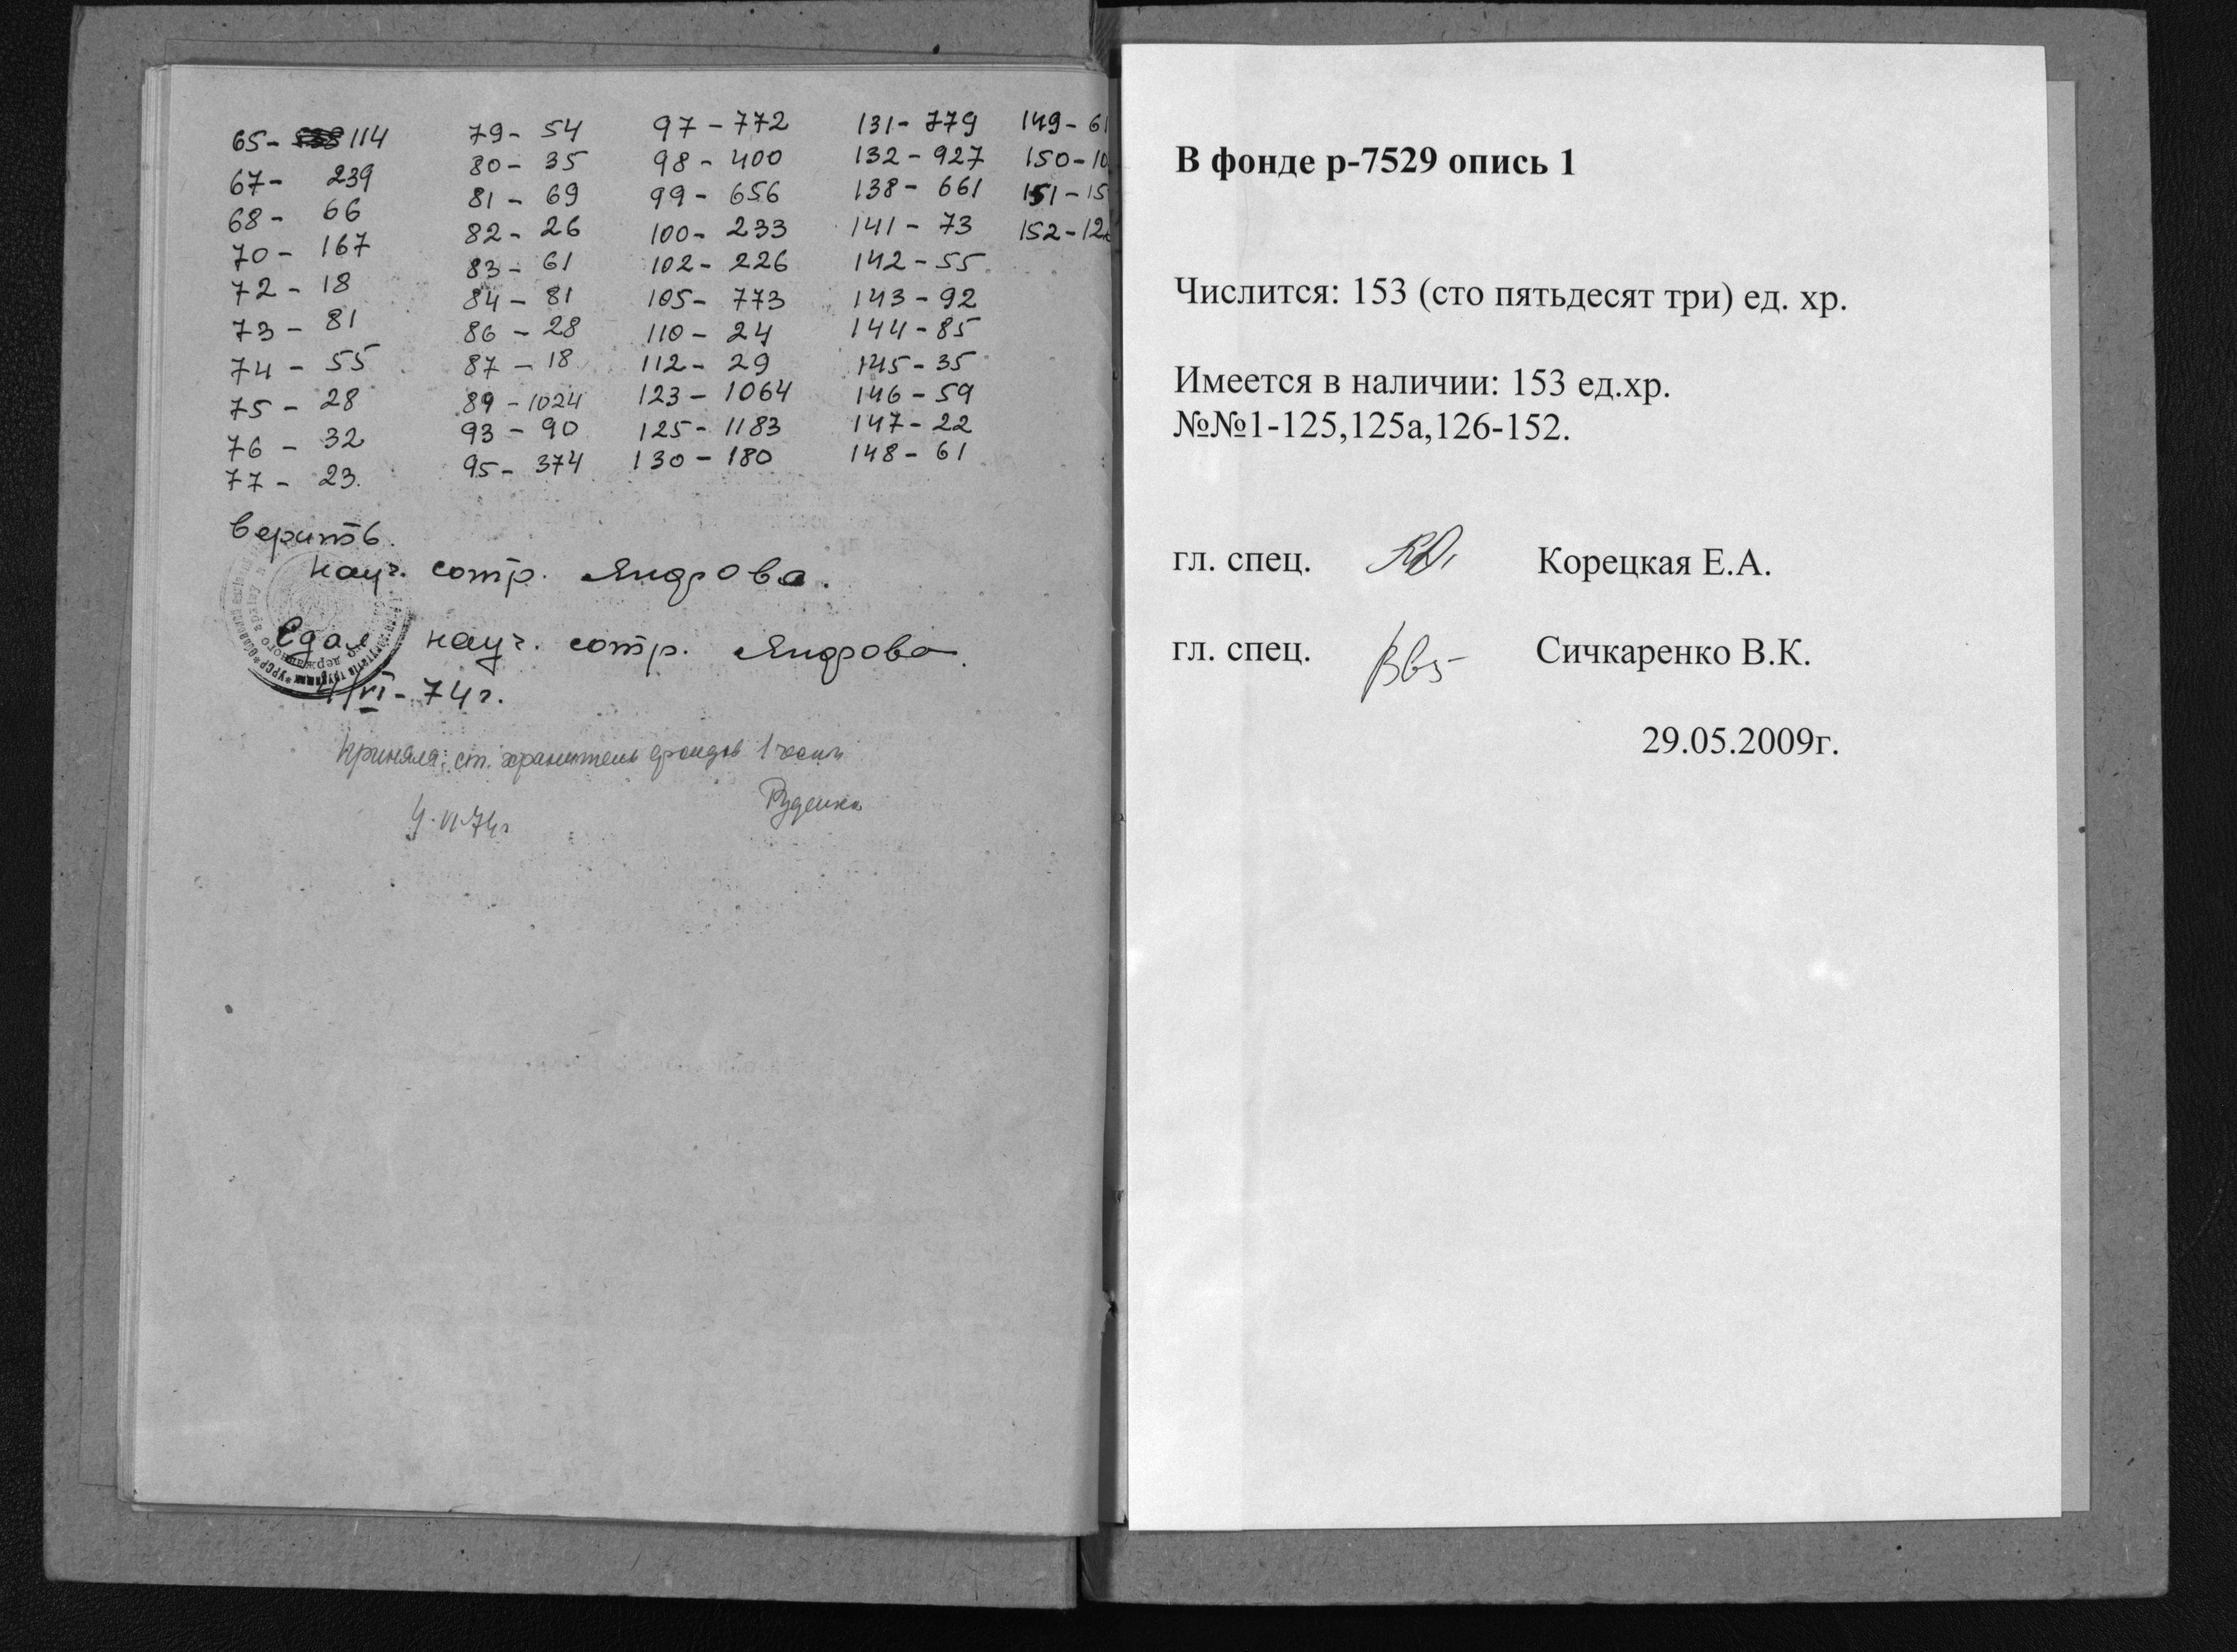 65- 114 79- 54 97-772 131-779 149-61
67- 239 80- 35 98-400 132-927 150-10
68- 66 81- 69 99- 656 138- 661 151-15
70- 167 82- 26 100- 233 141- 73 152-12
72- 18 83- 61 102- 226 142-55
73- 81 84- 81 105- 773 143-92
74- 55 86-28 110- 24 144-85
75- 28 87-18 112- 29 145-35
76- 32 89-1024 123-1064 146-59
77- 23. 93-90 125-1183 147-22
95-374 130-180 148-61
верить.
науч. сотр.
Сдал науч. сотр.
4/VI-74г.
Приняла: ст. хранитель фондов 1 части
Руденко
4.VI.74г
В фонде р-7529 опись 1
Числится: 153 (сто пятьдесят три) ед. хр.
Имеется в наличии: 153 ед.хр.
№№1-125,125а,126-152.
гл. спец. Корецкая Е.А.
гл. спец. Сичкаренко В.К.
29.05.2009г.